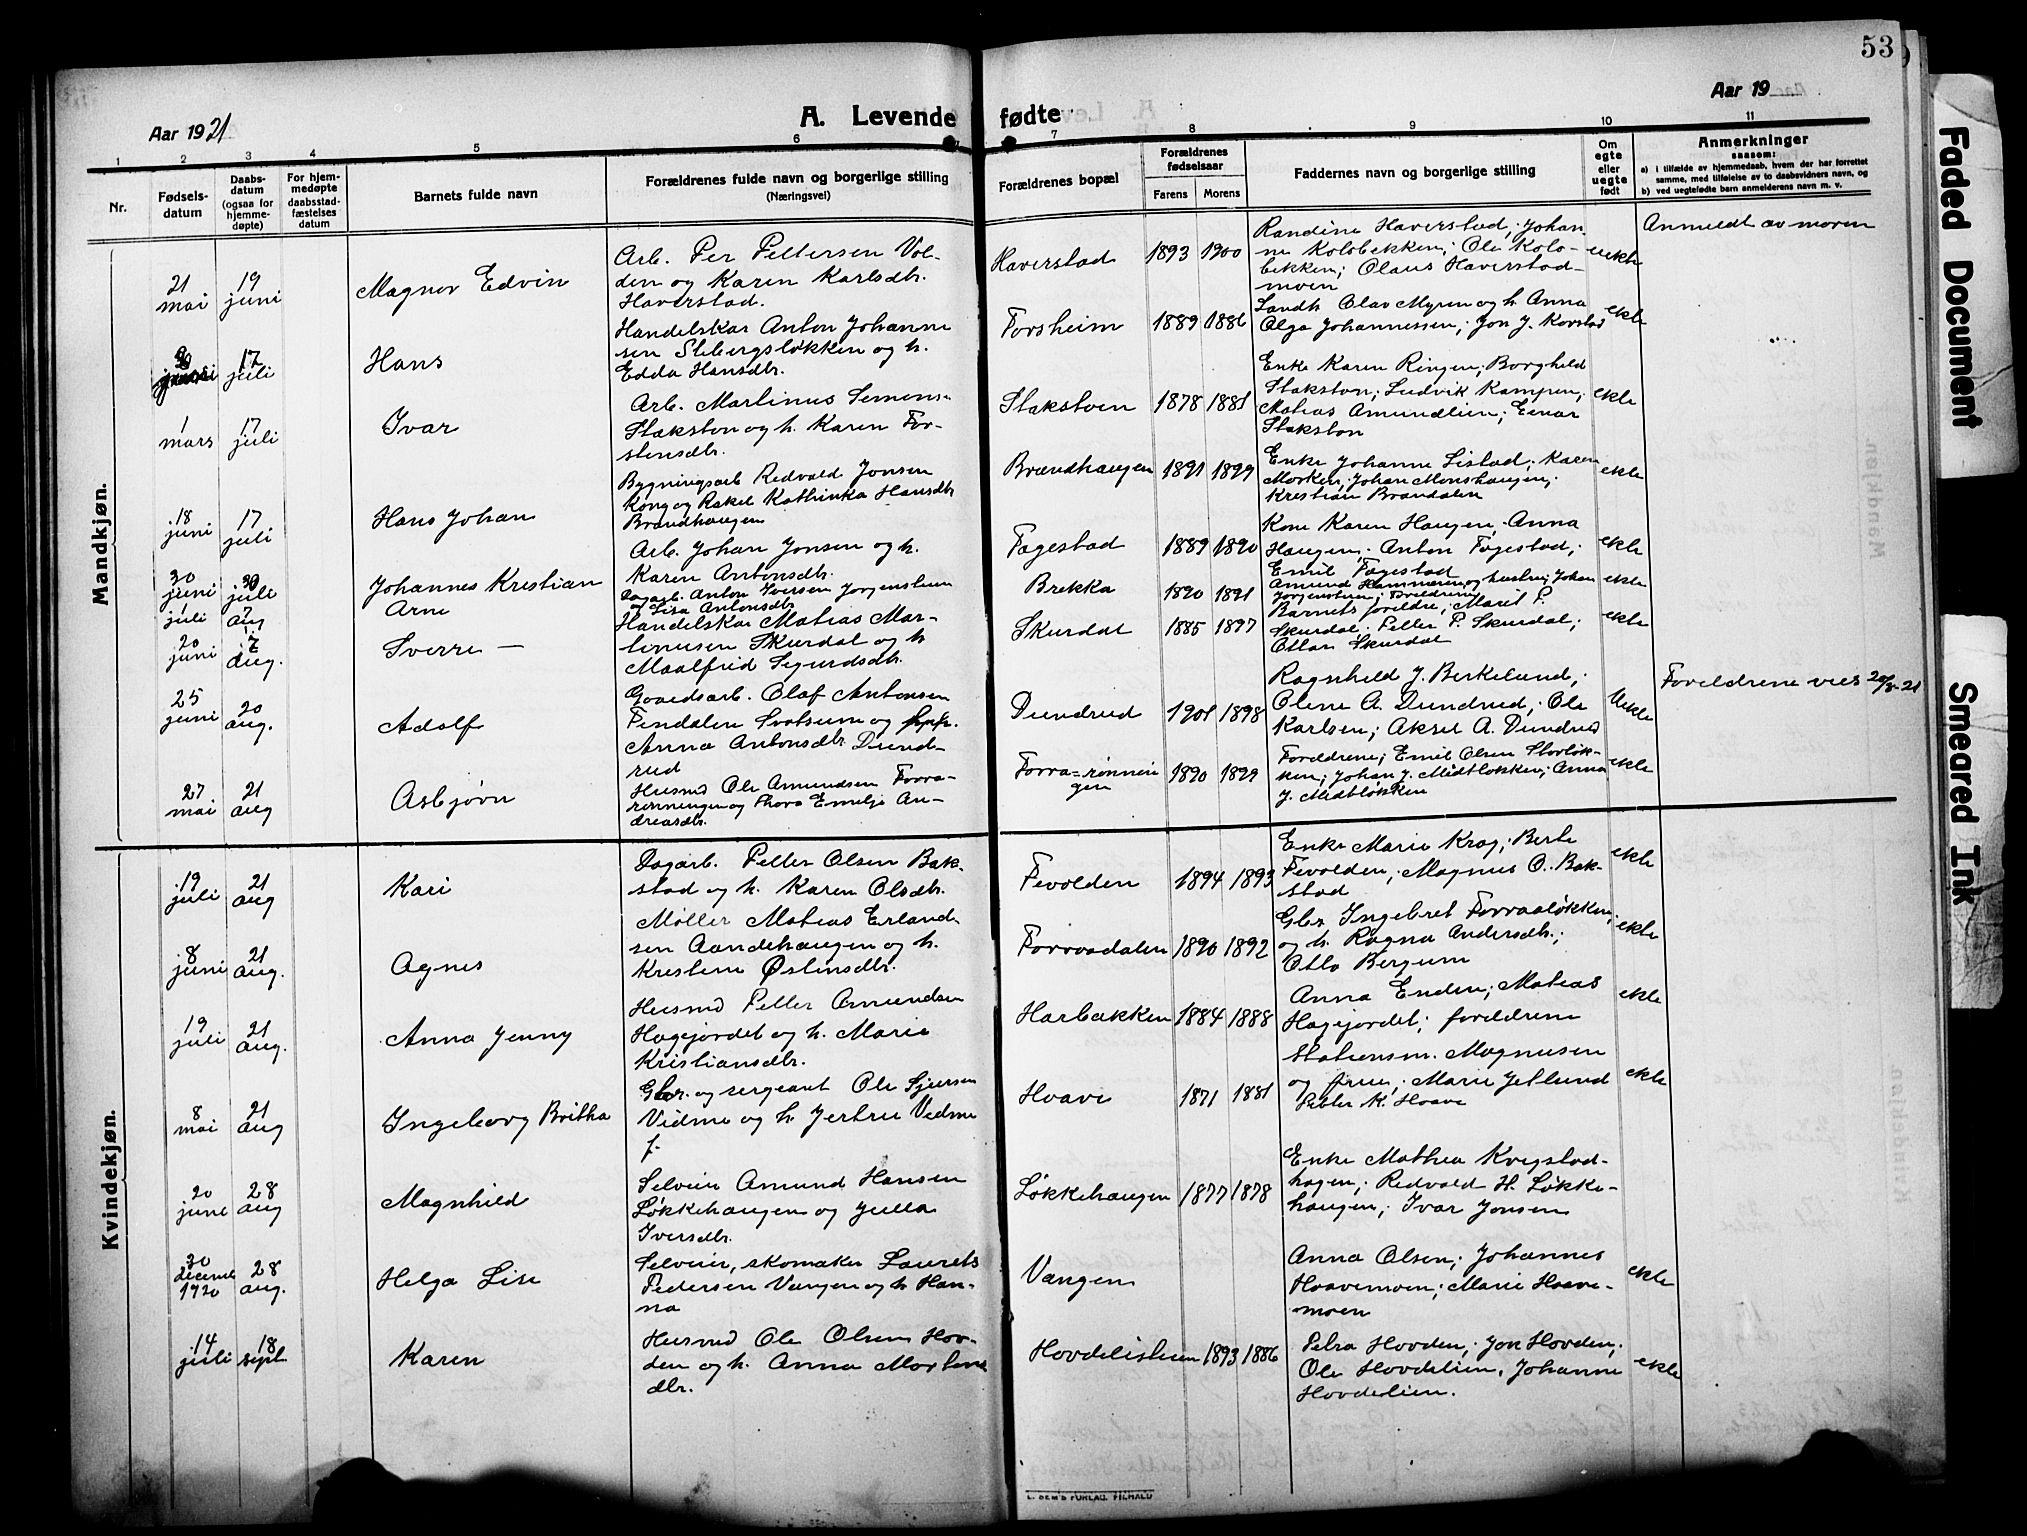 53
Aar 1921
A. Levende fødte
Aar 19
1 2 3 4 5 6 7 8 9 10 11
Nr.
Fødsels-
datum
Daabs-
datum
(ogsaa for
hjemme-
døpte)
For hjem-
medøpte
daabsstad-
fæstelses
datum
Barnets fulde navn
Forældrenes fulde navn og borgerlige stilling
(Næringsvei)
Forældrenes bopæl
Forældrenes
fødselsaar
Farens Morens
Faddernes navn og borgerlige stilling
Om
egte
eller
uegte
født
Anmerkninger
saasom:
a) i tilfælde av hjemmedaab, hvem der har forrettet
samme, med tilføielse av to daabsvidners navn, og
b) ved uegtefødte barn anmelderens navn m. v.
Mandkjøn.
21 mai
19 juni
Magnor Edvin
Arb. Per Pettersen Vol-
den og Karen Karlsdtr.
Haverstad.
Haverstad
1893 1900
Randine Haverstad; Johan
ne Kolobekken; Ole Kolo-
bekken; Olaus Haverstad-
moen
uekte
Anmeldt av moren
17 juli
Hans
Handelskar Anton Johanne
sen Slebergsløkken og h.
Edda Hansdtr.
Forsheim
1889 1886
Landh. Olav Myren og h. Anna
Olga Johannessen; Jon J. Korstad
ekte
1 mars
17 juli
Ivar
Arb. Martinus Semens-
Stakston og h. Karen Tor-
stensdtr.
Stakstoen
1878 1881
Enke Karen Ringen; Borghild
Stakston; Ludvik Kampen;
Matias Amundlien; Einar
Stakston
ekte
18 juni
17 juli
Hans Johan
Bygningsarb Redvald Jonsen
Kong og Rakel Kathinka Hansdtr
Brandhaugen
Brandhaugen
1891 1899
Enke Johanne Listad; Karen
Morken; Johan Monshaugen;
Kristian Brandalen
ekte
30 juni
30 juli
Johannes Kristian
Arb. Johan Jonsen og h.
Karen Antonsdtr.
Fagestad
1889 1890
Kone Karen Haugen; Anna
Haugen; Anton Fagestad;
Emil Fagestad
ekte
1 juli
7 aug
Arne
Dagarb. Anton Iversen Jorgenstuen
og Lisa Antonsdtr
Brekka
1890 1891
Amund Hammeren og hustru; Johan
Jorgenstuen; Foreldrene
ekte
20 juni
7 aug.
Sverre —
Handelskar Matias Mar-
tinusen Skurdal og h
Maalfrid Sigurdsdtr.
Skurdal
1885 1897
Barnets foreldre; Marit P.
Skurdal; Petter P. Skurdal;
Ottar Skurdal
ekte
25 juni
20 aug.
Adolf
Gaardsarb. Olaf Antonsen
Findalen Svatsum og
Anna Antonsdtr. Dund-
rud
Dundrud
1901 1898
Ragnhild J. Birkelund;
Olene A. Dundrud; Ole
Karlsen; Aksel A. Dundrud
Uekte
Foreldrene viet 20/8-21
27 mai
21 aug
Asbjørn
Husmd Ole Amundsen Forra-
rønningen og Thora Emilje An-
dreasdtr.
Forra-rønnin
gen
1890 1899
Foreldrene; Emil Olsen Storløk-
ken; Johan J. Midtløkken; Anna
J. Midtløkken
ekte
Kvindekjøn.
19 juli
21 aug
Kari
Dagarb. Petter Olsen Bak-
stad og h. Karen Olsdtr.
Fevolden
1894 1893
Enke Marie Krog; Berte
Fevolden; Magnus O. Bak-
stad
ekte
8 juni
21 aug.
Agnes
Møller Matias Erland-
sen Aandehaugen og h.
Kristine Østensdtr.
Forraadalen
1890 1892
Gbr Ingebret Forraaløkken;
og h. Ragna Andersdtr.;
Otto Bergum
ekte
19 juli
21 aug.
Anna Jenny
Husmd Petter Amundsen
Hagejordet og h. Marie
Kristiansdtr.
Harbakken
1884 1888
Anna Enden; Matias
Hagejordet; foreldrene
ekte
8 mai
21 aug
Ingeborg Britha
Gbr. og sergeant Ole Sjursen
Vidme og h. Jertru Vidme
f.
Hoave
1871 1881
Stationsm. Magnusen
og frue; Marie Jetlund
Petter K. Hoave
ekte
20 june
28 aug
Magnhild
Selveier Amund Hansen
Løkkehaugen og Julla
Iversdtr.
Løkkehaugen
1877 1878
Enke Mathea Kvystad-
hagen; Redvald H. Løkke-
haugen; Ivar Jonsen
30 decemb 1920
28 aug.
Helga Lise
Selveier, skomaker Laurits
Pedersen Vangen og h Han-
na
Vangen
Anna Olsen; Johannes
Hoavemoen; Marie Hoave-
moen
ekte
14 juli
18 sept.
Karen
Husmd Ole Olsen Hov-
den og h. Anna Martine
dtr.
Hovdelistuen
1893 1886
Petra Hovden; Jon Hovden;
Ole Hovdelien, Johanne
Hovdelien.
ekte
L. BEM'S FORLAG. FILHALD
Faded Document
Smeared Ink